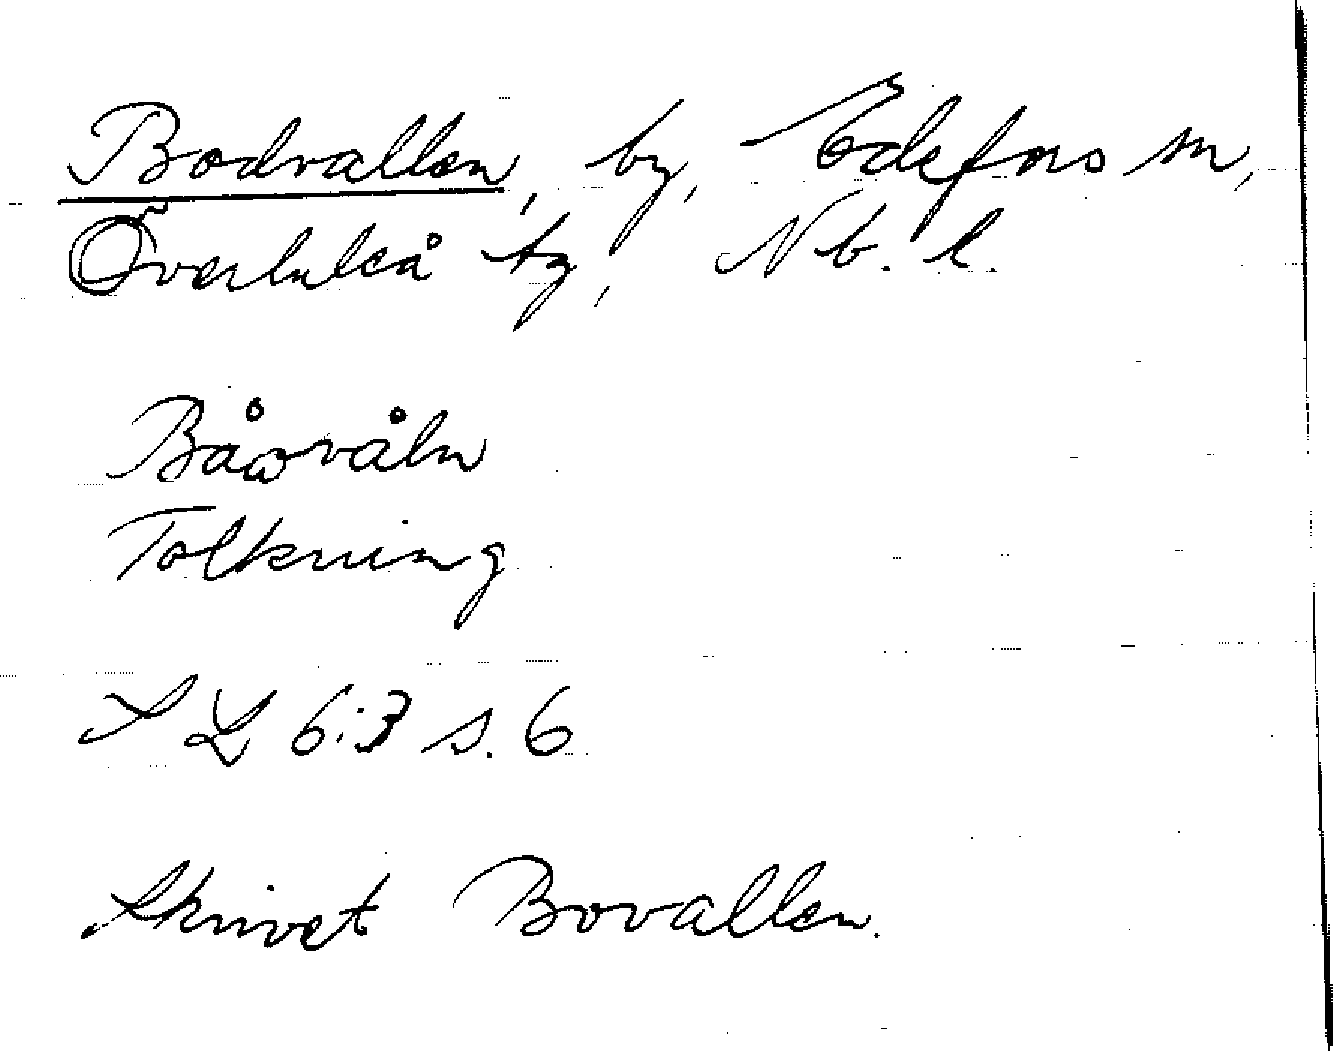 Bodvallen, by, Edefors sn,
Överluleå tg, Nb. l.
Båωvåln
Tolkning
S L 6:3 s. 6
Skrivet Bovallen.